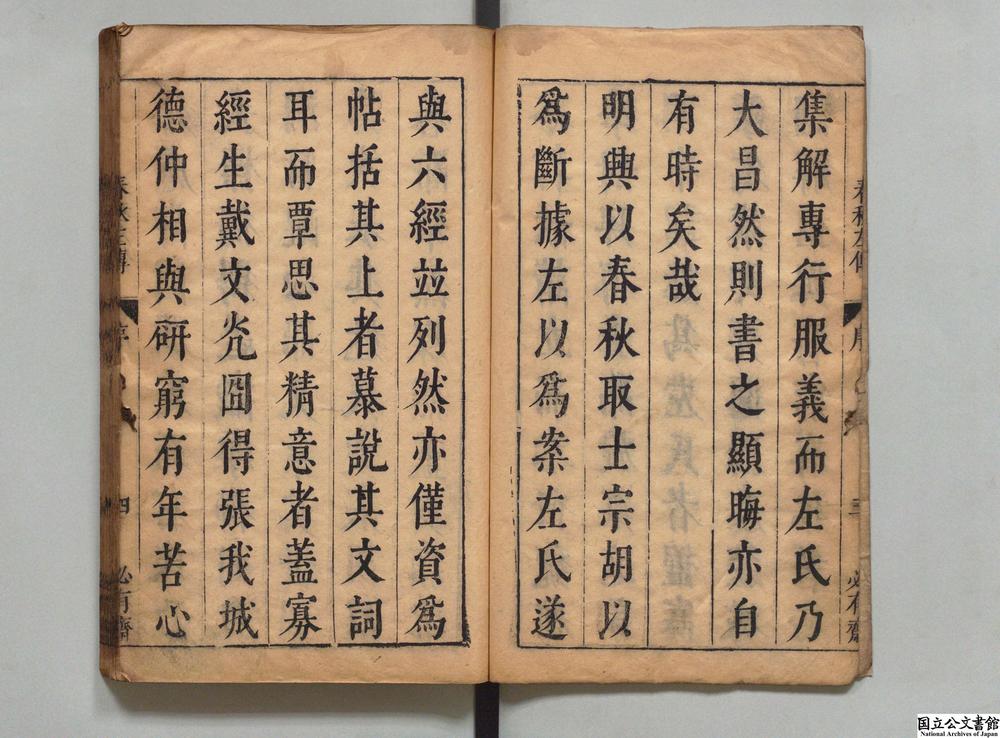 集解專行服義而左氏乃
大昌然則書之顯晦亦自
有時矣哉
明興以春秋取士宗胡以
爲斷據左以爲案左氏遂
與六經竝列然亦僅資爲
帖括其上者慕說其文詞
耳而覃思其精意者蓋寡
經生戴文光囧得張我城
德仲相與硏窮有年苦心
春秋左傳 序 三 必有齋
春秋左傳 序 四 必有齋
国立公文書館
National Archives of Japan